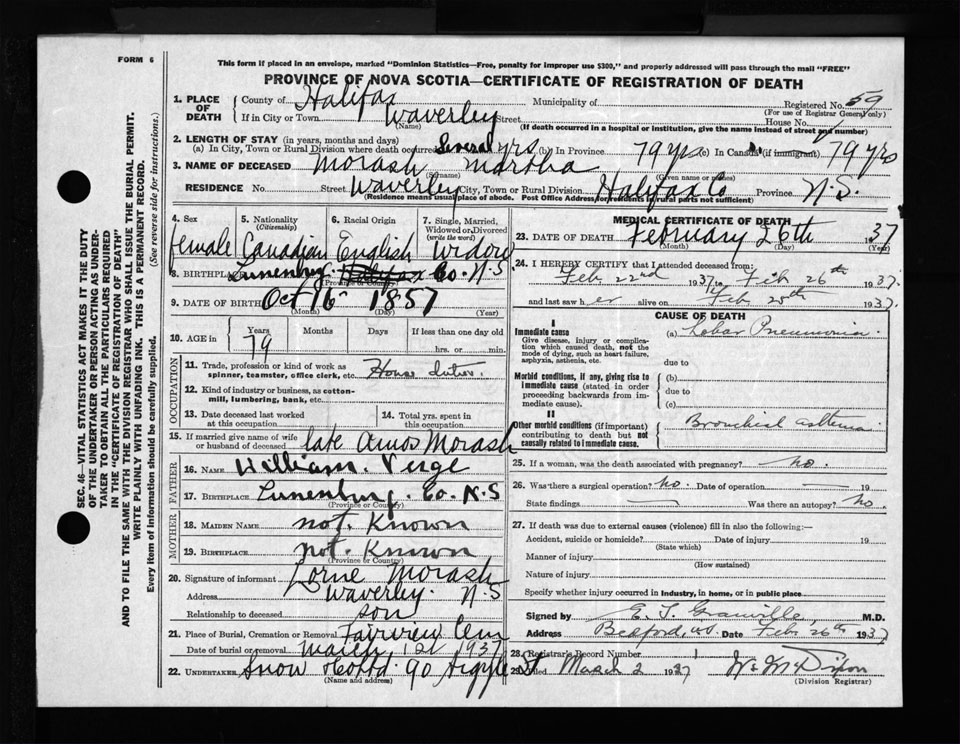 FORM 6
This form if placed in an envelope, marked "Dominion Statistics—Free, penalty for improper use $300," and properly addressed will pass through the mail "FREE"
PROVINCE OF NOVA SCOTIA—CERTIFICATE OF REGISTRATION OF DEATH
SEC. 46—VITAL STATISTICS ACT MAKES IT THE DUTY
OF THE UNDERTAKER OR PERSON ACTING AS UNDER-
TAKER TO OBTAIN ALL THE PARTICULARS REQUIRED
IN THE "CERTIFICATE OF REGISTRATION OF DEATH"
AND TO FILE THE SAME WITH THE DIVISION REGISTRAR WHO SHALL ISSUE THE BURIAL PERMIT.
WRITE PLAINLY WITH UNFADING INK. THIS IS A PERMANENT RECORD.
Every item of information should be carefully supplied. (See reverse side for instructions.)
1. PLACE OF DEATH County of Halifax Municipality of Registered No. 59
(For use of Registrar General only)
If in City or Town Waverley Street House No.
(Name) (If death occurred in a hospital or institution, give the name instead of street and number)
2. LENGTH OF STAY (in years, months and days)
(a) In City, Town or Rural Division where death occurred Several yrs (b) In Province 79 yrs (c) In Canada (if immigrant) 79 yrs
3. NAME OF DECEASED Morash Martha
(Surname) (Given name or names)
RESIDENCE No. Street Waverley City, Town or Rural Division Halifax Co Province N.S.
(Residence means usual place of abode. Post Office Address for residents in rural parts not sufficient)
4. Sex 5. Nationality (Citizenship) 6. Racial Origin 7. Single, Married, Widowed or Divorced (write the word)
female Canadian English Widow
8. BIRTHPLACE Lunenburg Halifax Co. N.S.
(Province or Country)
9. DATE OF BIRTH Oct 16 1857
(Month) (Day) (Year)
10. AGE in Years Months Days If less than one day old
79 hrs. or min.
OCCUPATION
11. Trade, profession or kind of work as spinner, teamster, office clerk, etc. House duties.
12. Kind of industry or business, as cotton-mill, lumbering, bank, etc.
13. Date deceased last worked at this occupation 14. Total yrs. spent in this occupation
15. If married give name of wife or husband of deceased late Amos Morash
FATHER
16. NAME William. Veige
17. BIRTHPLACE Lunenburg. Co. N.S
(Province or Country)
MOTHER
18. MAIDEN NAME not. Known
19. BIRTHPLACE not. Known
(Province or Country)
20. Signature of informant Lorne Morash
Address Waverley. N.S
Relationship to deceased son
21. Place of Burial, Cremation or Removal Fairview Cem
Date of burial or removal march 1st 1937
22. UNDERTAKER Snow &Co Ltd. 90 Argyle St
(Name and address)
MEDICAL CERTIFICATE OF DEATH
23. DATE OF DEATH February 26th 1937
(Month) (Day) (Year)
24. I HEREBY CERTIFY that I attended deceased from:
Feb 22nd 1937 to Feb 26th 1937.
and last saw her alive on Feb 25th 1937.
CAUSE OF DEATH
I
Immediate cause (a) Lobar Pneumonia.
Give disease, injury or complication which caused death, not the mode of dying, such as heart failure, asphyxia, asthenia, etc.
due to
Morbid conditions, if any, giving rise to immediate cause (stated in order proceeding backwards from immediate cause). (b)
due to
(c)
II
Other morbid conditions (if important) contributing to death but not causally related to immediate cause. Bronchial asthma
25. If a woman, was the death associated with pregnancy? no.
26. Was there a surgical operation? no. Date of operation — 19
State findings Was there an autopsy? no.
27. If death was due to external causes (violence) fill in also the following:—
Accident, suicide or homicide? Date of injury 19
(State which)
Manner of injury
(How sustained)
Nature of injury
Specify whether injury occurred in Industry, in home, or in public place
Signed by E. T. Granville, M.D.
Address Bedford, N.S. Date Feb 26th 1937
28. Registrar's Record Number 1
29. Filed March 2 1937
(Division Registrar)